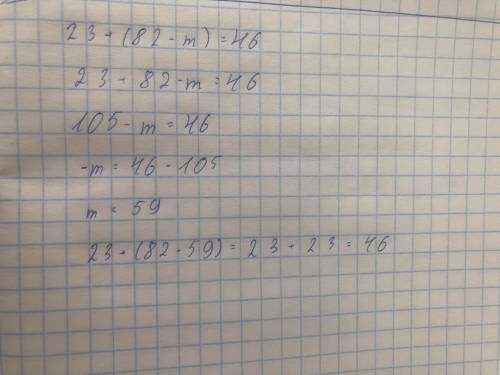 23 + (82 - m) = 46
23 + 82 - m = 46
105 - m = 46
-m = 46 - 105
m = 59
23 + (82 - 59) = 23 + 23 = 46